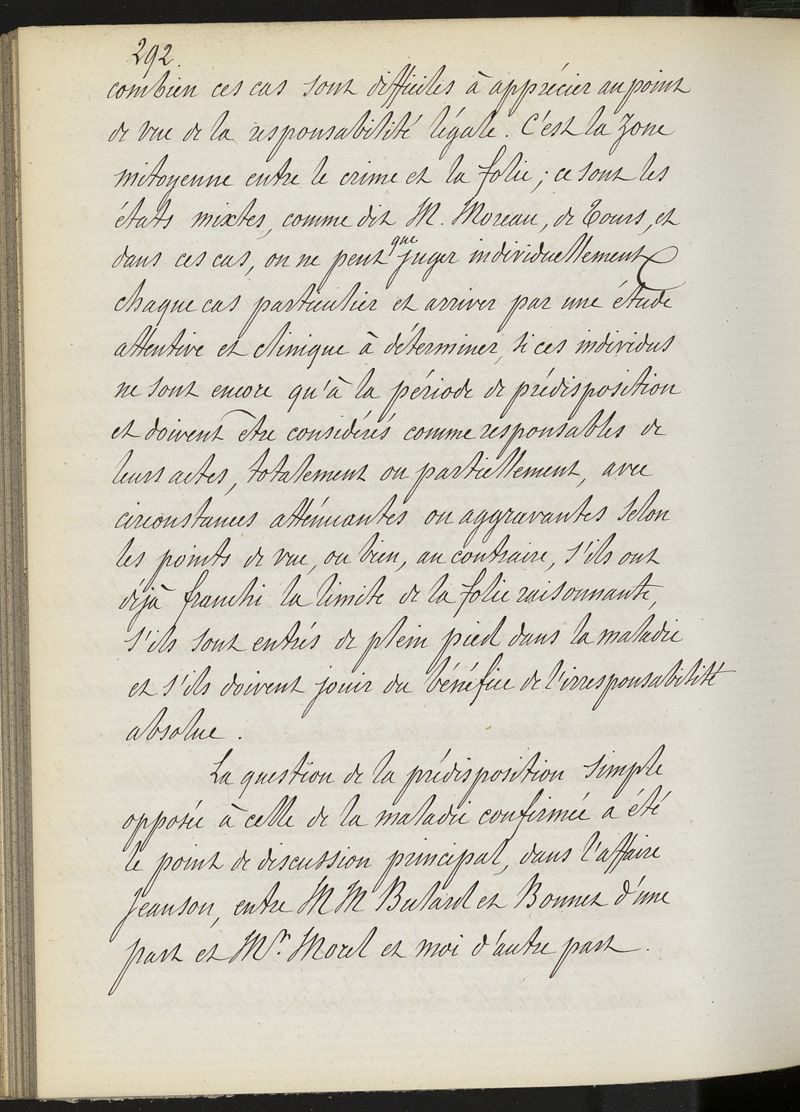 292.
combien ces cas sont difficiles à apprécier au point
de vue de la responsabilité légale. C'est la zone
mitoyenne entre le crime et la folie; ce sont les
états mixtes, comme dit M. Moreau, de Tours, et
dans ces cas, on ne peut que juger individuellement
chaque cas particulier et arriver par une étude
attentive et clinique à déterminer, si ces individus
ne sont encore qu'à la période de prédisposition
et doivent être considérés comme responsables de
leurs actes, totalement ou partiellement, avec
circonstances atténuantes ou aggravantes selon
les points de vue, ou bien, au contraire, s'ils ont
déjà franchi la limite de la folie raisonnante,
s'ils sont entrés de plein pied dans la maladie
et s'ils doivent jouir du bénéfice de l'irresponsabilité
absolue.
La question de la prédisposition simple
opposée à celle de la maladie confirmée a été
le point de discussion principal, dans l'affaire
Jeanson, entre MM Bulard et Bonnet d'une
part et Mr. Morel et moi d'autre part.